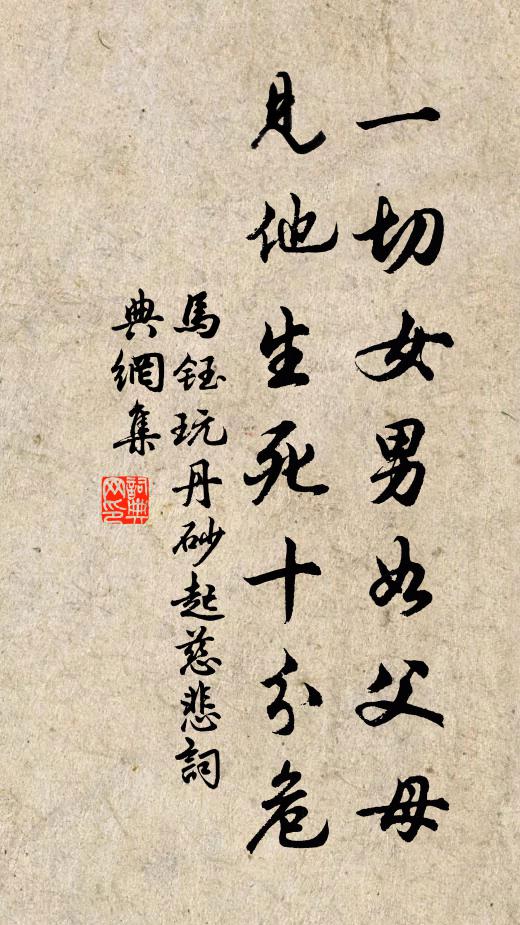 一切女男如父母
見他生死十分危
馬鈺玩丹砂起慈悲詞
典網集
詞典
网印